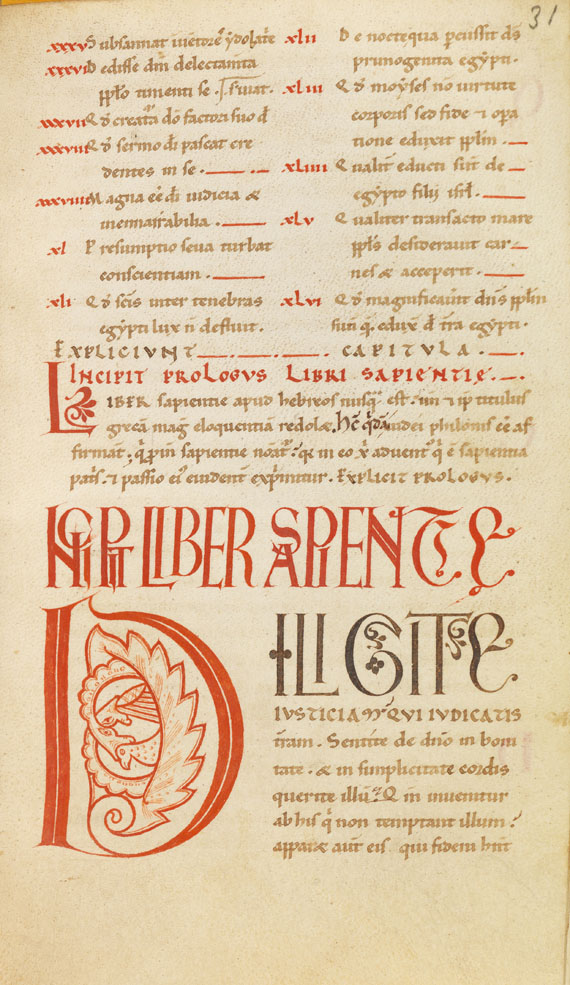 31
xxxv Subsannat
xxxvi Dedisse dm delectamta
pplo timenti se.
xxxvii Qd creata do factori suo d
xxxviii Qd sermo di pascat cre
dentes in se.
xxxviiii Magna eē di iudicia &
inennarrabilia.
xl Presumptio seua turbat
conscientiam.
xli Qd scis inter tenebras
egypti lux n defluit.
xlii De nocte qua percussit ds
primogenita egypti.
xliii Qd moyses nō virtute
corporis sed fide & ora
tione eduxit pplm.
xliiii Qualit educti sunt de
egypto filij isrl.
xlv Qualiter transacto mare
ppls desiderauit car
nes & acceperit.
xlvi Qd magnificauit dns pplm
suū q eduxit d tra egypti.
EXPLICIVNT CAPITVLA.
INCIPIT PROLOGVS LIBRI SAPIENTIE.
LIBER sapientie apud hebreos nusq est. un & ip titulus
grecā mag eloquentiam redolet. Hc qdā iudei philonis eē af
firmant. q pin sapientie noat. qr in eo x aduent q ē sapientia
patris & passio ei euident exprimitur. EXPLICIT PROLOGVS.
INCIPIT LIBER SAPIENTIE
DILIGITE
IVSTICIAM QVI IVDICATIS
tram. Sentite de dno in boni
tate. & in simplicitate cordis
querite illū. Qm inuenitur
ab his q non temptant illum.
apparet aut eis qui fidem hnt